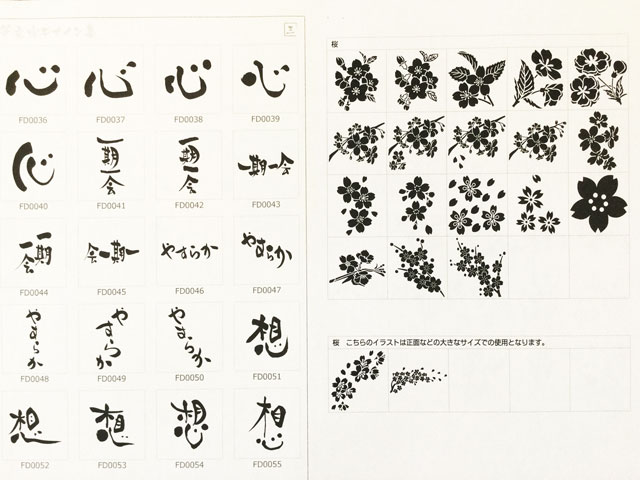 心 心 心 心
FD0036 FD0037 FD0038 FD0039
心 一期一会 一期一会 一期一会
FD0040 FD0041 FD0042 FD0043
一期一会 一期一会 やすらか やすらか
FD0044 FD0045 FD0046 FD0047
やすらか やすらか やすらか 想
FD0048 FD0049 FD0050 FD0051
想 想 想 想
FD0052 FD0053 FD0054 FD0055
桜
桜 こちらのイラストは正面などの大きなサイズでの使用となります。